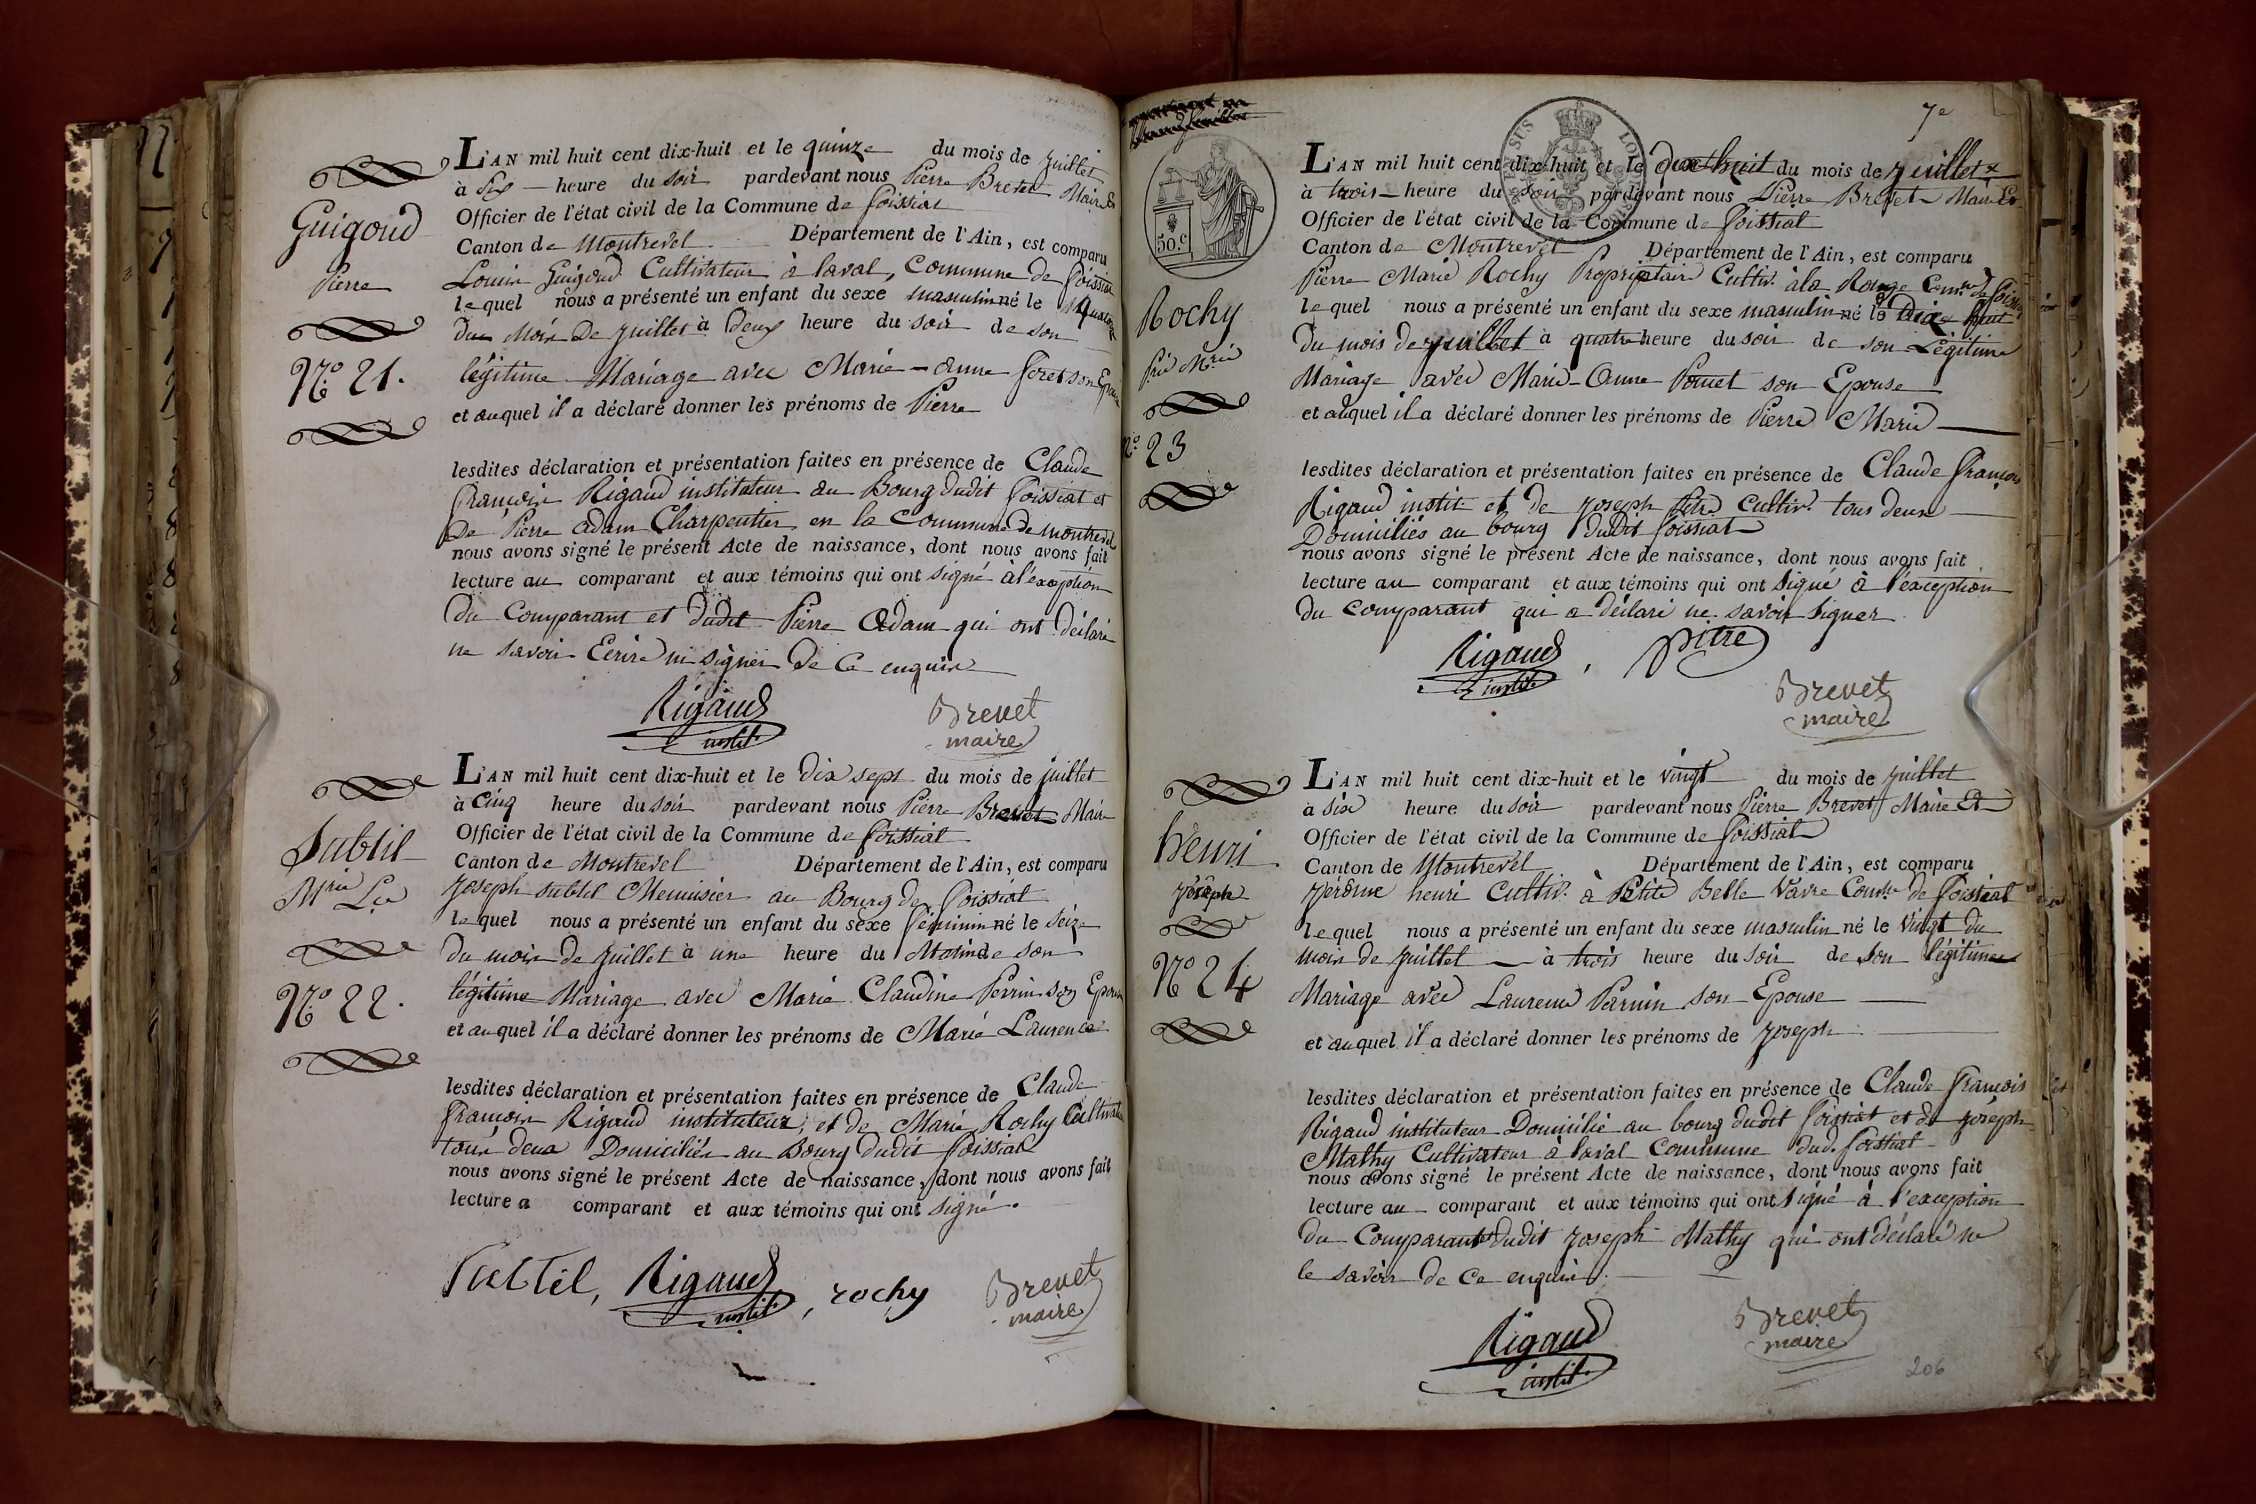 L'AN mil huit cent dix-huit et le quinze du mois de juillet
à six heure du soir pardevant nous Pierre Brevet Maire Et
Officier de l'état civil de la Commune de foissiat
Canton de Montrevel Département de l'Ain, est comparu
Louis Guigoud Cultivateur à laval, Commune de foissiat
lequel nous a présenté un enfant du sexe masculin né le quatorze
du Mois De juillet à deux heure du soir de son
légitime Mariage avec Marie-Anne feret son Epouse
et auquel il a déclaré donner les prénoms de Pierre
Guigoud
Pierre
N.º 21.
lesdites déclaration et présentation faites en présence de Claude
françois Rigaud instituteur au Bourg dudit foissiat et
De Pierre adam Charpentier en la Commune de montrevel
nous avons signé le présent Acte de naissance, dont nous avons fait
lecture au comparant et aux témoins qui ont signé à l'exception
du Comparant et dudit Pierre Adam qui ont déclaré
ne savoir Ecrire ni signer de Ce enquis
Rigaud
instit.
Brevet
maire
L'AN mil huit cent dix-huit et le dix sept du mois de juillet
à Cinq heure du soir pardevant nous Pierre Brevet Maire
Officier de l'état civil de la Commune de foissiat
Canton de Montrevel Département de l'Ain, est comparu
joseph subtil Menuisier au Bourg de foissiat
lequel nous a présenté un enfant du sexe féminin né le seize
du mois de juillet à une heure du Matin de son
légitime Mariage avec Marie Claudine Perrin son Epouse
et auquel il a déclaré donner les prénoms de Marie Laurence
Subtil
M.rie L.ce
N.º 22.
lesdites déclaration et présentation faites en présence de Claude
françois Rigaud instituteur, et de Marie Rochy Cultivateur
tous deux Domiciliés au Bourg dudit foissiat
nous avons signé le présent Acte de naissance, dont nous avons fait
lecture a comparant et aux témoins qui ont signé.
Subtil, Rigaud
instit., rochy
Brevet
maire
7e
50.c
L'AN mil huit cent dix-huit et le dix huit du mois de juillet
à trois heure du soir pardevant nous Pierre Brevet Maire Et
Officier de l'état civil de la Commune de foissiat
Canton de Montrevel Département de l'Ain, est comparu
Pierre Marie Rochy Propriétaire Cultiv.r à la Rouge Com.ne de foissiat
lequel nous a présenté un enfant du sexe masculin né le Dix huit
du mois de juillet à quatre heure du soir de son Légitime
Mariage avec Marie-Anne Ponet son Epouse
et auquel il a déclaré donner les prénoms de Pierre Marie
Rochy
P.re M.rie
N.º 23
lesdites déclaration et présentation faites en présence de Claude françois
Rigaud instit. et de joseph Pitre cultiv.r tous deux
Domiciliés au bourg dudit foissiat
nous avons signé le présent Acte de naissance, dont nous avons fait
lecture au comparant et aux témoins qui ont signé à l'exception
du comparant qui a déclaré ne savoir signer
Rigaud
instit., pitre
Brevet
maire
L'AN mil huit cent dix-huit et le vingt du mois de juillet
à six heure du soir pardevant nous Pierre Brevet Maire Et
Officier de l'état civil de la Commune de foissiat
Canton de Montrevel Département de l'Ain, est comparu
jérôme henri Cultiv.r à Petite Belle Vavre Com.ne de foissiat
lequel nous a présenté un enfant du sexe masculin né le Vingt du
mois de juillet à trois heure du soir de son légitime
Mariage avec Laurence Parnin son Epouse
et auquel il a déclaré donner les prénoms de joseph
henri
joseph
N.º 24
lesdites déclaration et présentation faites en présence de Claude françois
Rigaud instituteur Domicilié au bourg dudit foissiat et de joseph
Mathy Cultivateur à laval Commune dud. foissiat
nous avons signé le présent Acte de naissance, dont nous avons fait
lecture au comparant et aux témoins qui ont signé à l'exception
du Comparant dudit joseph Mathy qui ont déclaré ne
le savoir de Ce enquis.
Rigaud
instit.
Brevet
maire
206